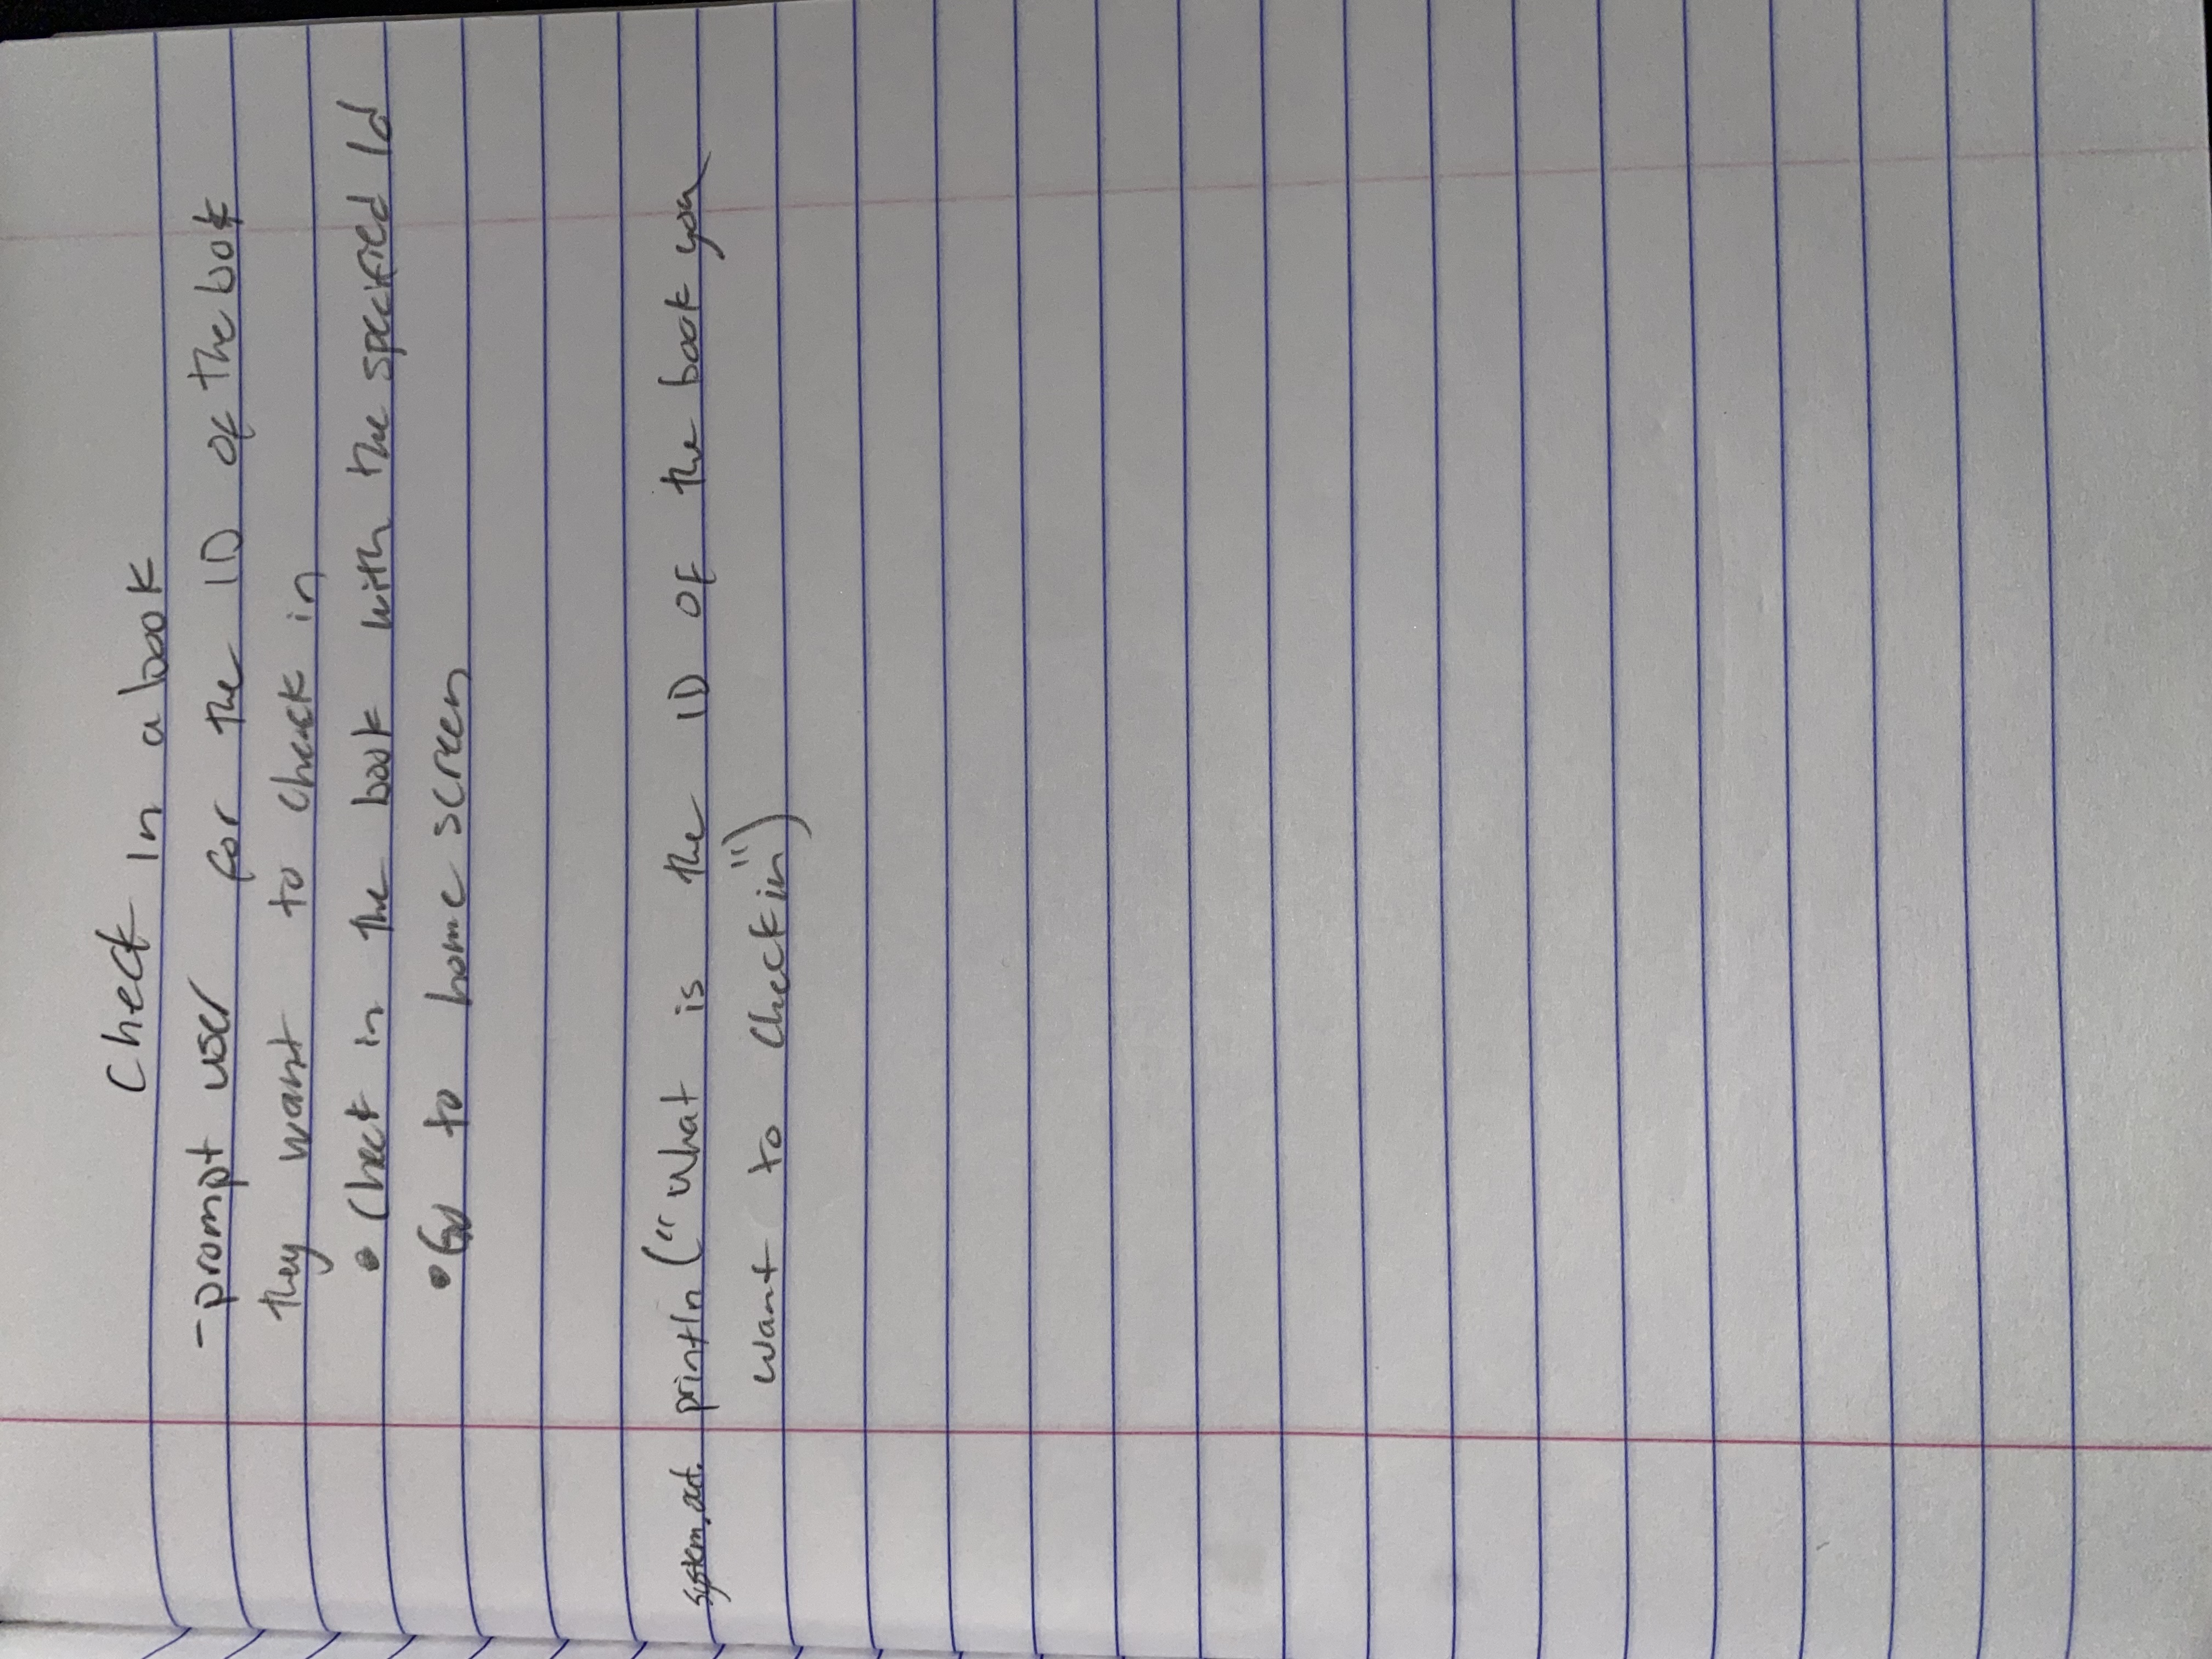 Check in a book
- prompt user for the ID of the book
they want to check in
• Check in the book with the specified Id
• Go to home screen
system.out. println ("What is the ID of the book you
want to check in")